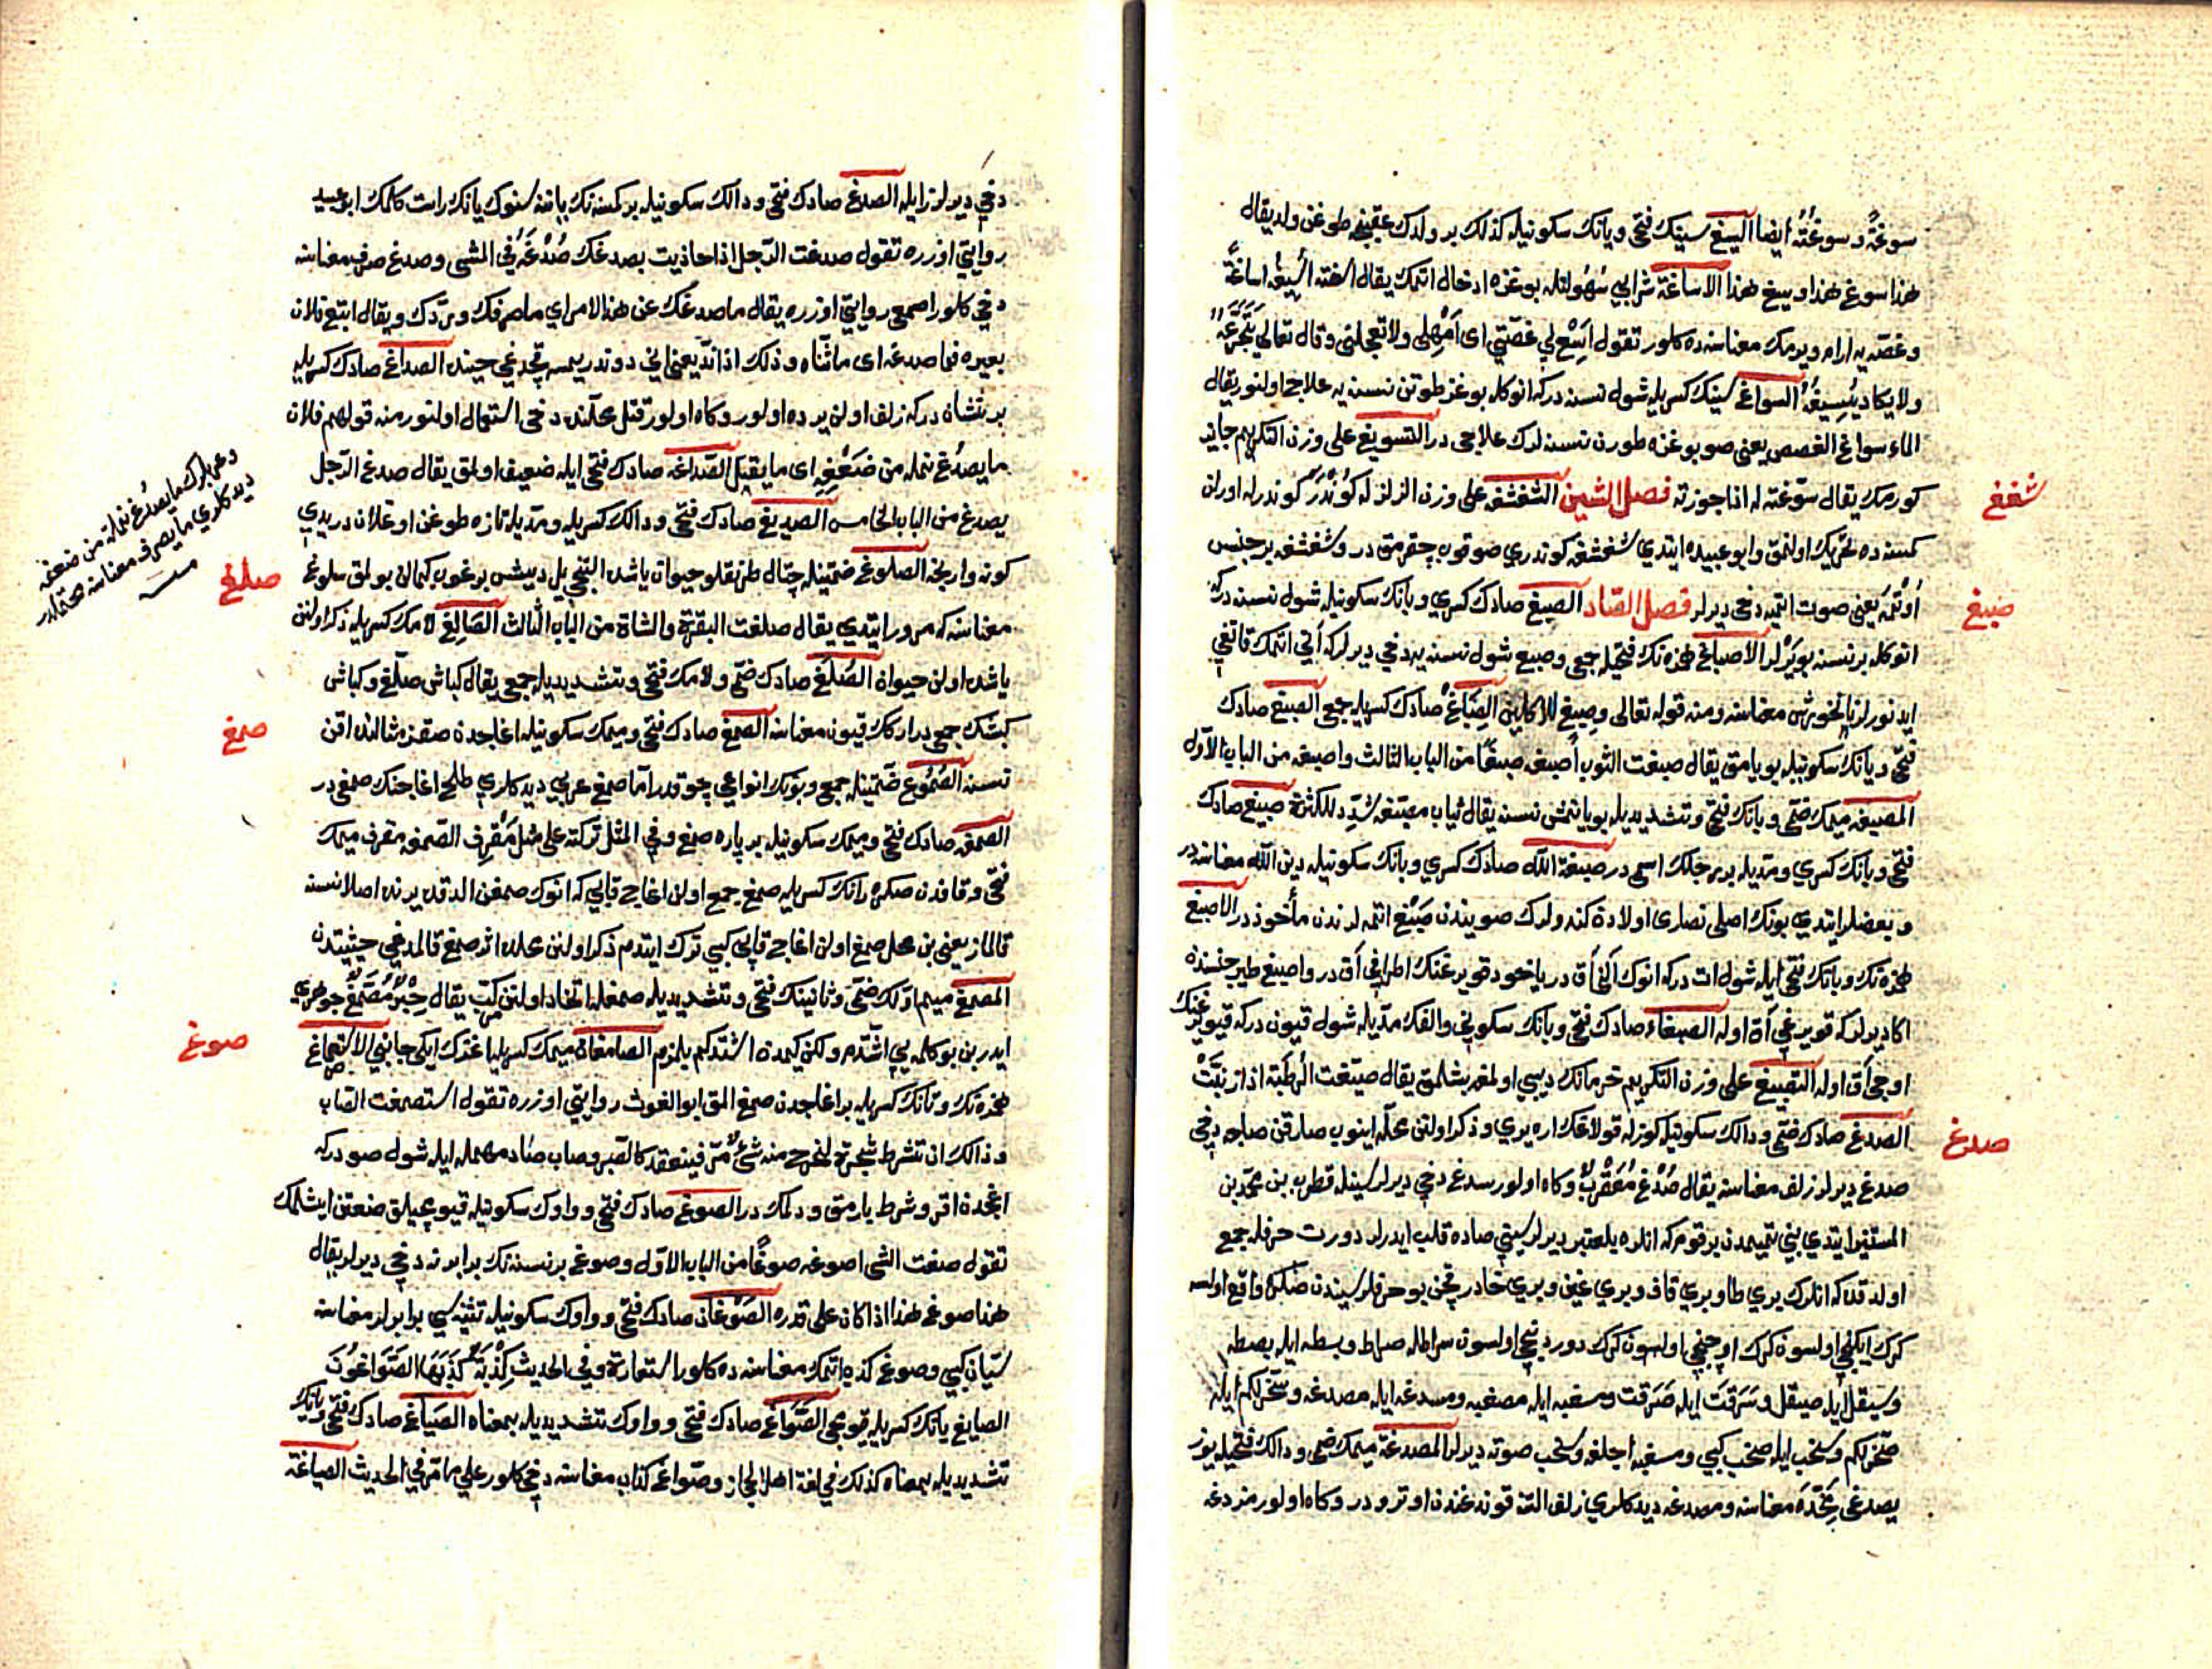 سوغةً وسوغتُهُ ايضا السيغ سينك فتحى ويانك سكونيله كذلك بر ولدك عقبنجه طوغن ولد يقال
هذا سوغ هذا وسيغ هذا الاساغة شرابي سُهُولتله بوغزه ادخال اتمك يقال اسغته اُسيغُه اساغةً
وغصه يه ارام ويرمك معناسنه ده كلور تقول اَسِغْ لي غصّتي اى اَمْهِلى ولا تعجلنى وقال تعالى يَتَجَرَّعُهُ
ولا يكاد يُسِيغُهُ السواغ سينك كسريله شول نسنه دركه انوكله بوغز طوتن نسنه يه علاج اولنور يقال
الماء سواغ الغصص يعنى صو بوغزه طورن نسنه لرك علاجى در التسويغ على وزن التكريم جايز
كورمك يقال سوّغته له اذا جوزته فصل الشين الشغشغه على وزن الزلزله كوندر كوندرله اورلن
كمسنه ده تحريك اولنمق وابو عبيده ايتدى شغشغه كوندرى صوقوب چقرمق در وشغشغه بر جنس
اُوتْمَه يعنى صوت ايتمه دخى ديرلر فصل الصّاد الصبغ صادك كسرى وبانك سكونيله شول نسنه دركه
انوكله بر نسنه بويَرْلر الاصباغ همزه نك فتحيله جمعى وصبغ شول نسنه يه دخى ديرلركه اَنى اتمك قاتغى
ايدنورلر ناخورش معناسنه ومنه قوله تعالى وصبغ للاكلين الصِبَاغْ صادك كسريله جمعى الصبغ صادك
فتحى وبانك سكونيله بويامق يقال صبغت الثوب اصبغه صبغًا من الباب الثالث واصبغه من الباب الاوّل
المصبغه ميمك ضمّى وبانك فتحى وتشديديله بويانمش نسنه يقال ثياب مصبّغه شدّد للكثرة صبيغ صادك
فتحى وبانك كسرى ومدّيله بر رجلك اسمى در صبغة اللّه صادك كسرى وبانك سكونيله دين اللّه معناسنه در
وبعضلر ايتدى بونك اصلى نصارى اولادن كندولرك صويندن صَبْغ اتمه لرندن مأخوذ در الاصبغ
همزه نك وبانك فتحى ايله شول ات دركه انوك اَلنى اَق در ياخود قويرغنك اطرافى اَق در واصبغ طير جنسنده
اكا ديرلركه قويرغى اَق اوله الصبغاء صادك فتحى وبانك سكونى والفك مدّيله شول قيون دركه قويرغنك
اوجى اَق اوله التصبيغ على وزن التكريم خرمانك ديبى اولمغه بشلمق يقال صبّغت الرُطَبَة اذا ذنبت
الصدغ صادك ضمّى ودالك سكونيله كوزله قولاغك اره يرى وذكر اولنن محلّه اينوب صارقن صاچه دخى
صدغ ديرلر زلف معناسنه يقال صُدْغٌ مُعَقْرَبٌ وكاه اولور سدغ دخى ديرلر سينله قطرب بن محمّد بن
المستنير ايتدى بنى تميمدن بر قوم كه انلره بلعنبر ديرلر سينى صاده قلب ايدرلر دورت حرفله جمع
اولدقده كه انلرك برى طا وبرى قاف وبرى غين وبرى خا در قچن بو حرفلر سيندن صكره واقع اولسه
كرك ايكنجى اولسون كرك اوچنجى اولسون كرك دوردنجى اولسون سراطله صراط وبسطه ايله بصطه
وسيقل ايله صيقل وسَرَقتَ ايله صَرَقت ومسغبه ايله مصغبه ومسدغه ايله مصدغه وسخّر لكم ايله
صخّر لكم وسخب ايله صخب كبى ومسغبه اجلغه وسخب صوته ديرلر المصدغة ميمك كسرى ودالك فتحيله يوز
يصدغى مخَدّه معناسنه ومصدغه ديدكلرى زلف التنه قوندغندن اوترو در وكاه اولور مزدغه
شغغ
صبغ
صدغ
دخى ديرلر زايله الصدغ صادك فتحى ودالك سكونيله بر كمسنه نك ياننه سنوك يانك راست كلمك ابو عبيد
روايتى اوزره تقول صدغت الرّجل اذا حاذيت بصدغك صُدْغَهُ في المشى وصدغ صرف معناسنه
دخى كلور اصمعى روايتى اوزره يقال ما صدغك عن هذا الامر اي ما صرفك وردّك ويقال اتبع فلان
بعيره فما صدغه اى ما ثناه وذلك اذا ندّ يعنى انى دوندريمه سه قچدغى حينده الصداغ صادك كسريله
بر نشان دركه زلف اولن يرده اولور وكاه اولور قتل محلّنده دخى استعمال اولنور منه قولهم فلان
ما يصدُغ نمله من ضَعْفِهِ اى ما يقتل الصّداغه صادك فتحى ايله ضعيف اولمق يقال صدغ الرّجل
يصدغ من الباب الخامس الصديغ صادك فتحى ودالك كسريله ومدّيله تازه طوغن اوغلان در يدى
كونه وارنجه الصلوغ ضمّتينله چتال طرنقلو حيوان ياشده التنجى يل ديشن برغوب كمالن بولمق سلوغ
معناسنه كه مرور ايتدى يقال صلغت البقرة والشاة من الباب الثالث الصَالِغ لامك كسريله ذكر اولنن
ياشده اولن حيوان الصُلَّغ صادك ضمّى ولامك فتحى وتشديديله جمعى يقال كباش صلّغ وكباش
كبشك جمعى در ارككك قيون معناسنه الصمغ صادك فتحى وميمك سكونيله اغاجدن صقز مثالنده اقن
نسنه الصُمُوغ ضمّتينله جمعى وبونك انواعى چوقدر امّا صمغ عربى ديدكلرى طلح اغاجنك صمغى در
الصمغه صادك فتحى وميمك سكونيله بر پاره صمغ وفي المثل تركته على مثل مَقْرِف الصّمغه مقرف ميمك
فتحى وقافدن صكره رانك كسريله صمغ جمع اولن اغاج قابى كه انوك صمغن الدقده يرنده اصلا نسنه
قالماز يعنى بن محل صمغ اولن اغاج قابى كبى ترك ايتدم ذكر اولنن محلده اثر صمغ قالمدغى حيثيتدن
المصمّغ ميم اوّلك ضمّى وثانينك فتحى وتشديديله صمغله اتخاذ اولنن مركّب يقال حِبْرٌ مُصَمَّغٌ جوهرى
ايدر بن بو كلمه يى اشتدم ولكن كيمدن اشتدكم بلمزم الصامغان ميمك كسريله اغزك ايكى جانبى الاستصماغ
همزه نك وتانك كسريله بر اغاجدن صمغ المق ابو الغوث روايتى اوزره تقول استصمغت الصّاب
وذالك ان تشرط شجرة ليخرج منه شئٌ مرّ فينعقد كالصّبر وصاب صاد مهمله ايله شول صو دركه
اغجدن اقر وشرط يارمق ودلمك در الصوغ صادك فتحى وواوك سكونيله قيومجيلق صنعتن ايشلمك
تقول صغت الشى اصوغه صوغًا من الباب الاوّل وصوغ بر نسنه نك برابرنه دخى ديرلر يقال
هذا صوغ هذا اذا كان على قدره الصَوْغان صادك فتحى وواوك سكونيله تثنيه سى برابرلر معناسنه
سيّان كبى وصوغ كذب اتمك معناسنه ده كلور استعارة وفي الحديث كِذْبَةٌ كَذَبَهَا الصَوّاغُونَ
الصايغ يانك كسريله قيومجى الصَوّاغ صادك فتحى وواوك تشديديله بمعناه الصَيّاغ صادك فتحى ويانك
تشديديله بمعناه كذلك في لغة اهل الحجاز وصوّاغ كذاب معناسنه دخى كلور على ما مرّ في الحديث الصياغة
وعربلرك ما يصدُغ نملة من ضعفه
ديدكلرى ما يصرف معناسنه محتملدر
صلغ
صمغ
صوغ